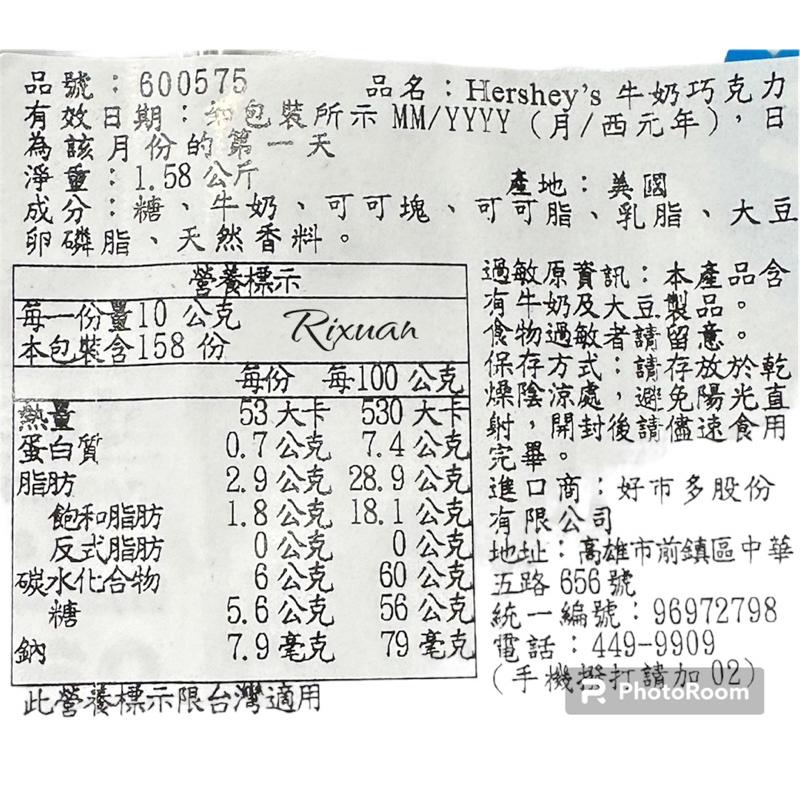 品號：600575 品名：Hershey's 牛奶巧克力
有效日期：如包裝所示 MM/YYYY（月/西元年），日
為該月份的第一天
淨重：1.58 公斤 產地：美國
成分：糖、牛奶、可可塊、可可脂、乳脂、大豆
卵磷脂、天然香料。
營養標示
每一份量10 公克
本包裝含158 份
每份 每100 公克
熱量 53 大卡 530 大卡
蛋白質 0.7 公克 7.4 公克
脂肪 2.9 公克 28.9 公克
飽和脂肪 1.8 公克 18.1 公克
反式脂肪 0 公克 0 公克
碳水化合物 6 公克 60 公克
糖 5.6 公克 56 公克
鈉 7.9 毫克 79 毫克
此營養標示限台灣適用
Rixuan
過敏原資訊：本產品含
有牛奶及大豆製品。
食物過敏者請留意。
保存方式：請存放於乾
燥陰涼處，避免陽光直
射，開封後請儘速食用
完畢。
進口商：好市多股份
有限公司
地址：高雄市前鎮區中華
五路 656 號
統一編號：96972798
電話：449-9909
(手機撥打請加 02)
PhotoRoom